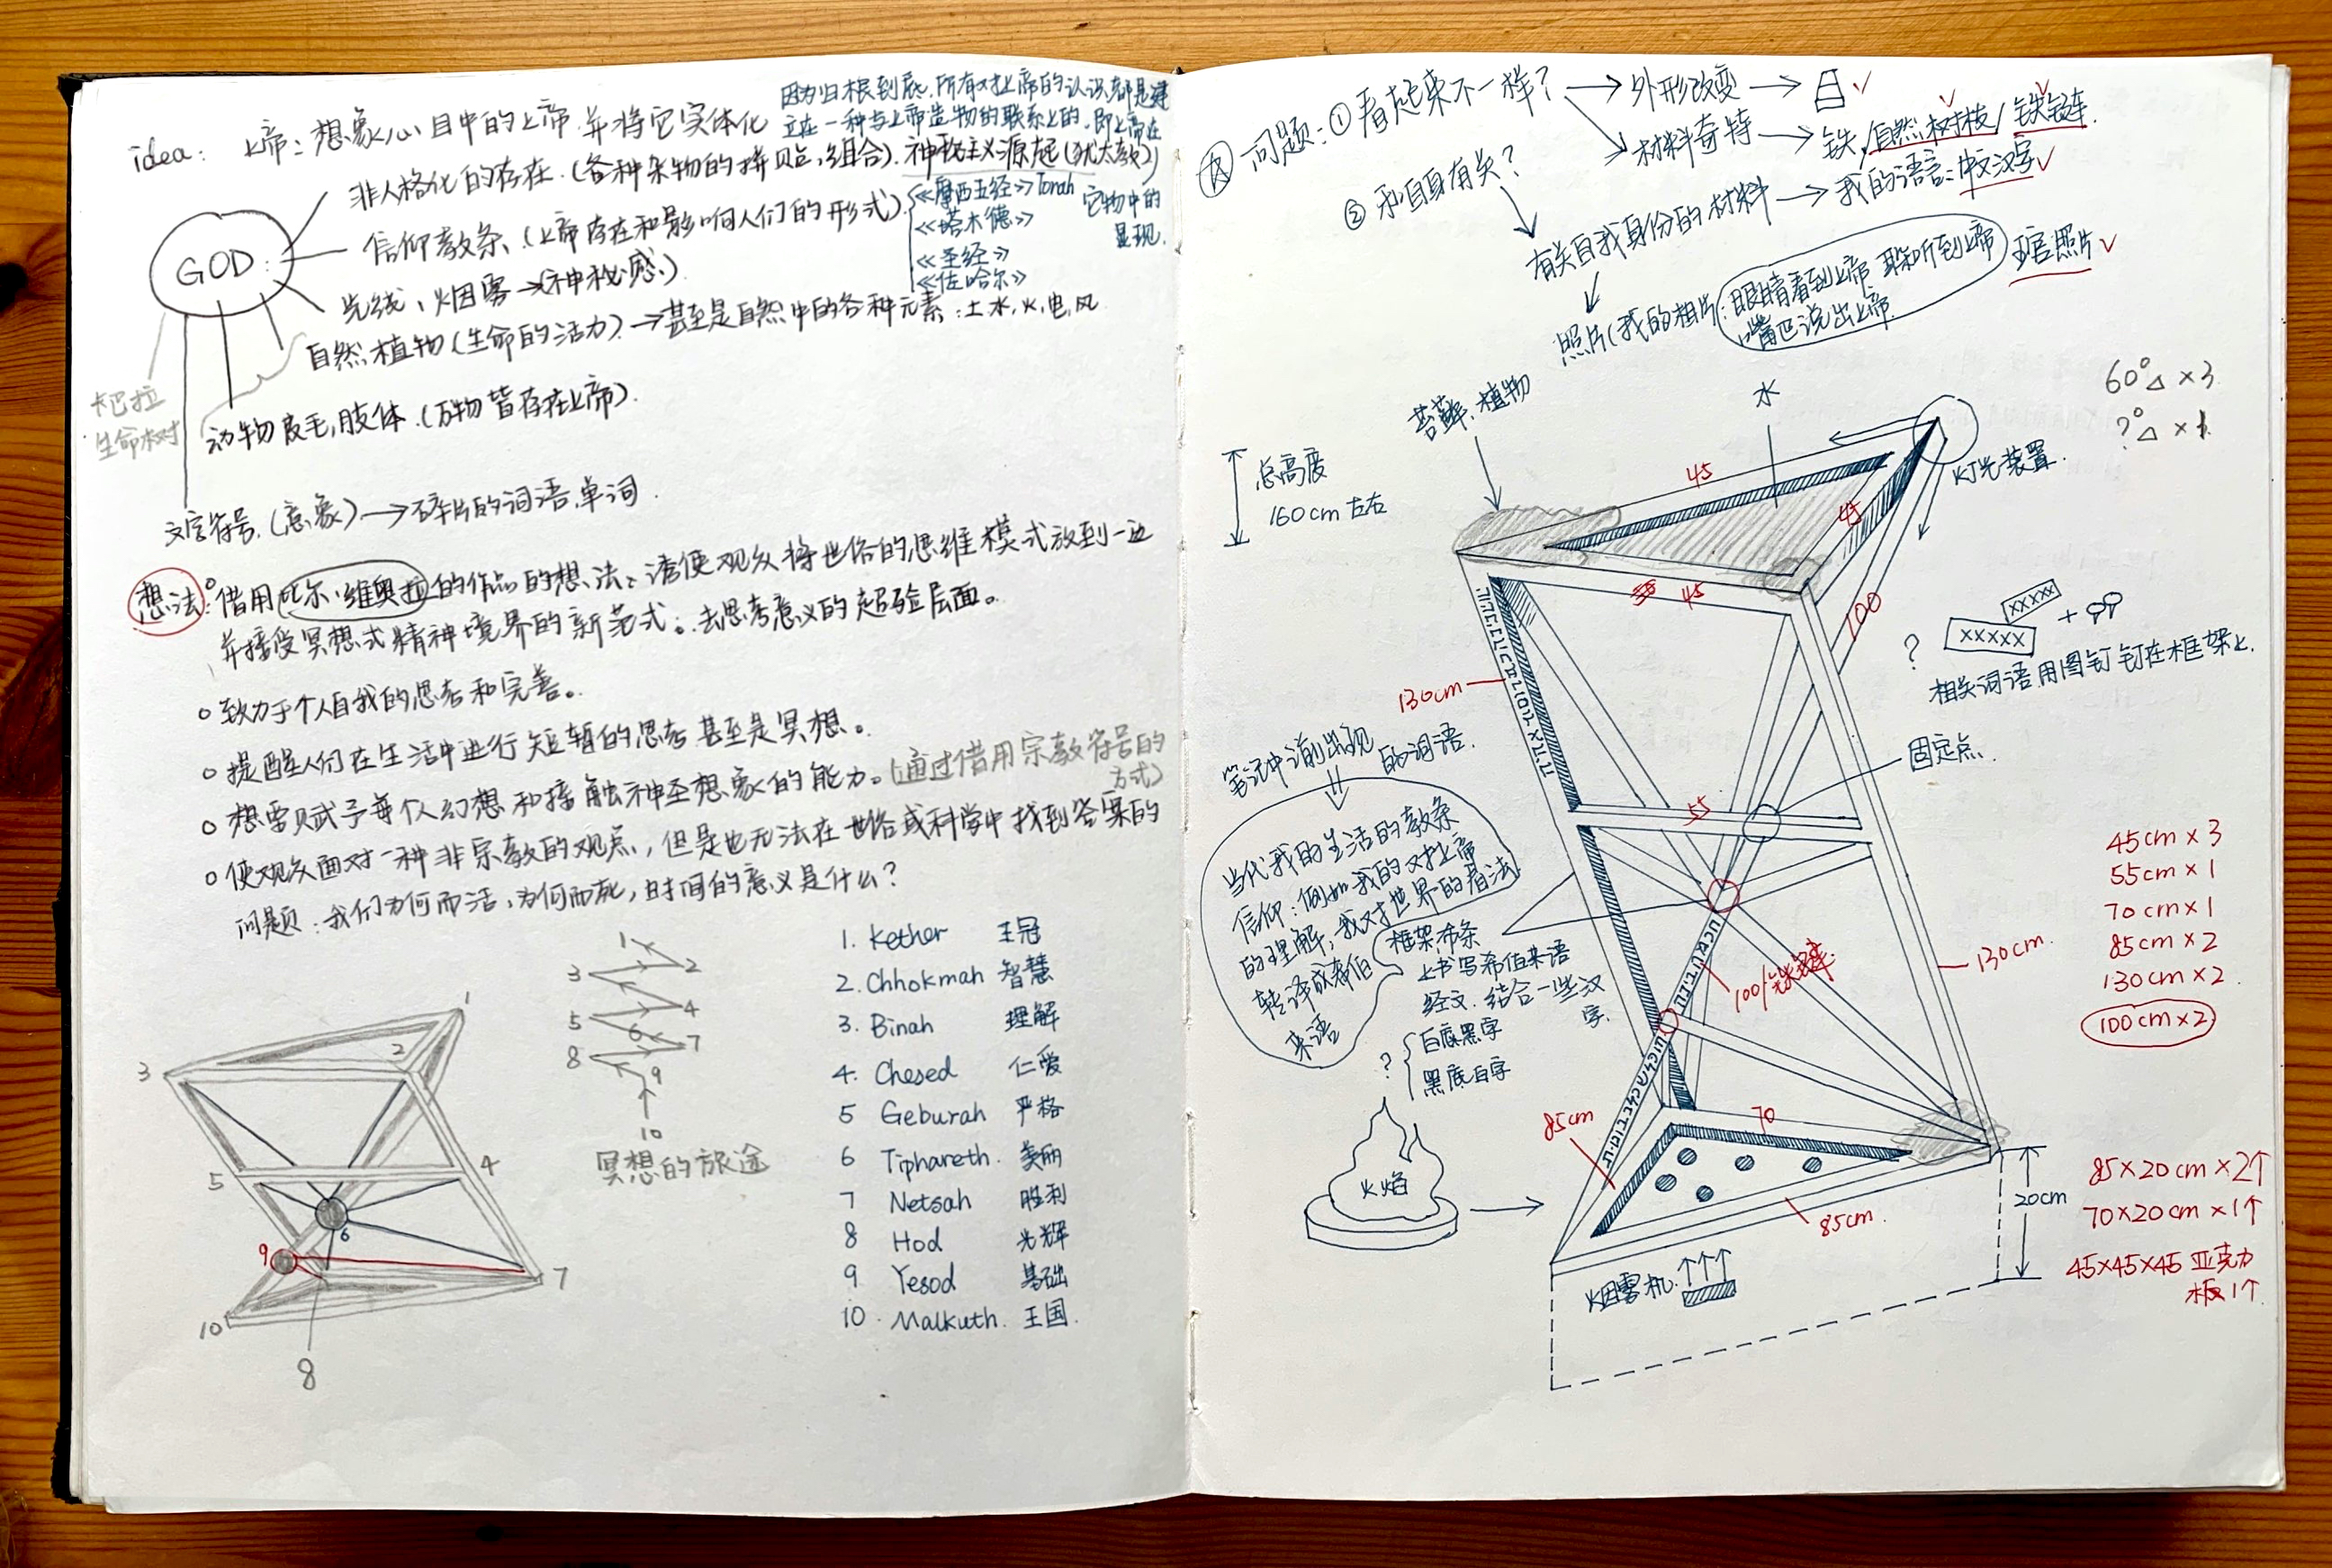 idea: 上帝:想象心目中的上帝.并将它实体化
因为归根到底.所有对上帝的认识都是建
立在一种与上帝造物的联系上的.即上帝在
它物中的
显现.
非人格化的存在.(各种杂物的拼贴,组合).神秘主义源起(犹太教)
《摩西五经》Torah
《塔木德》
《圣经》
《佐哈尔》
GOD:
信仰教条、(上帝存在和影响人们的形式)
光线、烟雾→(神秘感)
自然植物(生命的活力).→甚至是自然中的各种元素:土,水,火,电,风
卡巴拉
生命树
动物皮毛,肢体.(万物皆存在上帝).
文字符号.(意象)→碎片的词语,单词.
想法:借用比尔·维奥拉的作品的想法:诱使观众将世俗的思维模式放到一边
并接受冥想式精神境界的新范式。去思考意义的超验层面。
○ 致力于个人自我的思考和完善。
○ 提醒人们在生活中进行短暂的思考甚至是冥想。
○ 想要赋予每个人幻想和接触神圣想象的能力。(通过借用宗教符号的
方式)
○ 使观众面对一种非宗教的观点,但是也无法在世俗或科学中找到答案的
问题:我们为何而活,为何而死,时间的意义是什么?
1
2
3
4
5
6
7
8
9
10
冥想的旅途
1. Kether 王冠
2. Chhokmah 智慧
3. Binah 理解
4. Chesed 仁爱
5 Geburah 严格
6 Tiphareth. 美丽
7 Netsah 胜利
8 Hod 光辉
9 Yesod 基础
10. Malkuth. 王国.
1
2
3
4
5
6
7
8
9
10
问题:① 看起来不一样? → 外形改变 →
材料奇特 → 铁,自然树枝/铁链.
② 和自身有关?
有关自我身份的材料 → 我的语言:中文汉字
照片(我的相片:眼睛看到上帝 耳听到上帝
嘴巴说出上帝.
五官照片
60° △ ×3
?° △ ×1
苔藓、植物
水
总高度
160cm 左右
灯光装置.
45
45
45
100
? xxxxx xxxxx +
相关词语用图钉钉在框架上.
130cm
固定点.
55
笔记中之前出现
的词语.
当代我的生活的教条
信仰:例如我的对上帝
的理解,我对世界的看法
转译成希伯
来语
框架布条
上书写希伯来语
经文.结合一些汉
字.
? 白底黑字
黑底白字
100/铁链
130cm.
45cm × 3
55cm × 1
70cm × 1
85cm × 2
130cm × 2
100cm × 2
火焰
85cm
70
85cm.
20cm
烟雾机
85×20cm ×2个
70×20cm ×1个
45×45×45 亚克力
板1个